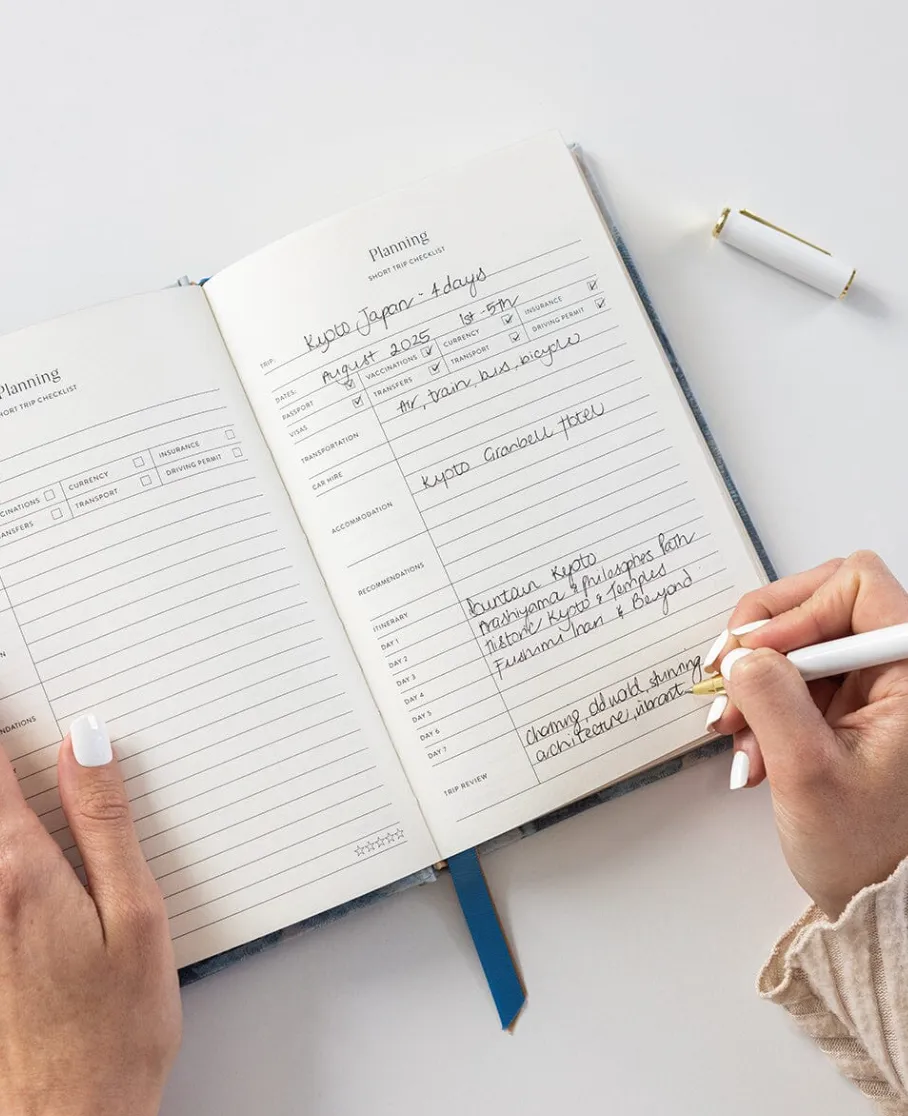 Planning
SHORT TRIP CHECKLIST
CINATIONS CURRENCY INSURANCE
ANSFERS TRANSPORT DRIVING PERMIT
Planning
SHORT TRIP CHECKLIST
TRIP: Kyoto Japan - 4 days
DATES: August 2025 1st - 5th
PASSPORT VACCINATIONS CURRENCY INSURANCE
VISAS TRANSFERS TRANSPORT DRIVING PERMIT
TRANSPORTATION Air, train, bus, bicycle
CAR HIRE
ACCOMMODATION Kyoto Granbell Hotel
RECOMMENDATIONS
ITINERARY
DAY 1 Kyoto
DAY 2 Arashiyama & Philosophes Path
DAY 3 Historic Kyoto & Temples
DAY 4 Fushimi Inari & Beyond
DAY 5
DAY 6
DAY 7
TRIP REVIEW charming, old world, stunning
architecture, vibrant